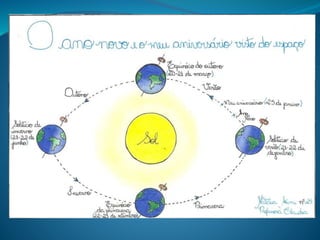 O ano novo e o meu aniversário visto do espaço
Equinócio do outono
(20-21 de março)
Outono
Verão
Meu aniversário
Solstício de
inverno
(21-22 de
junho)
Sol
Solstício de
verão (21-22 de
dezembro)
Inverno
Primavera
Equinócio
da primavera
(22-23 de setembro)
Professora Cláudia